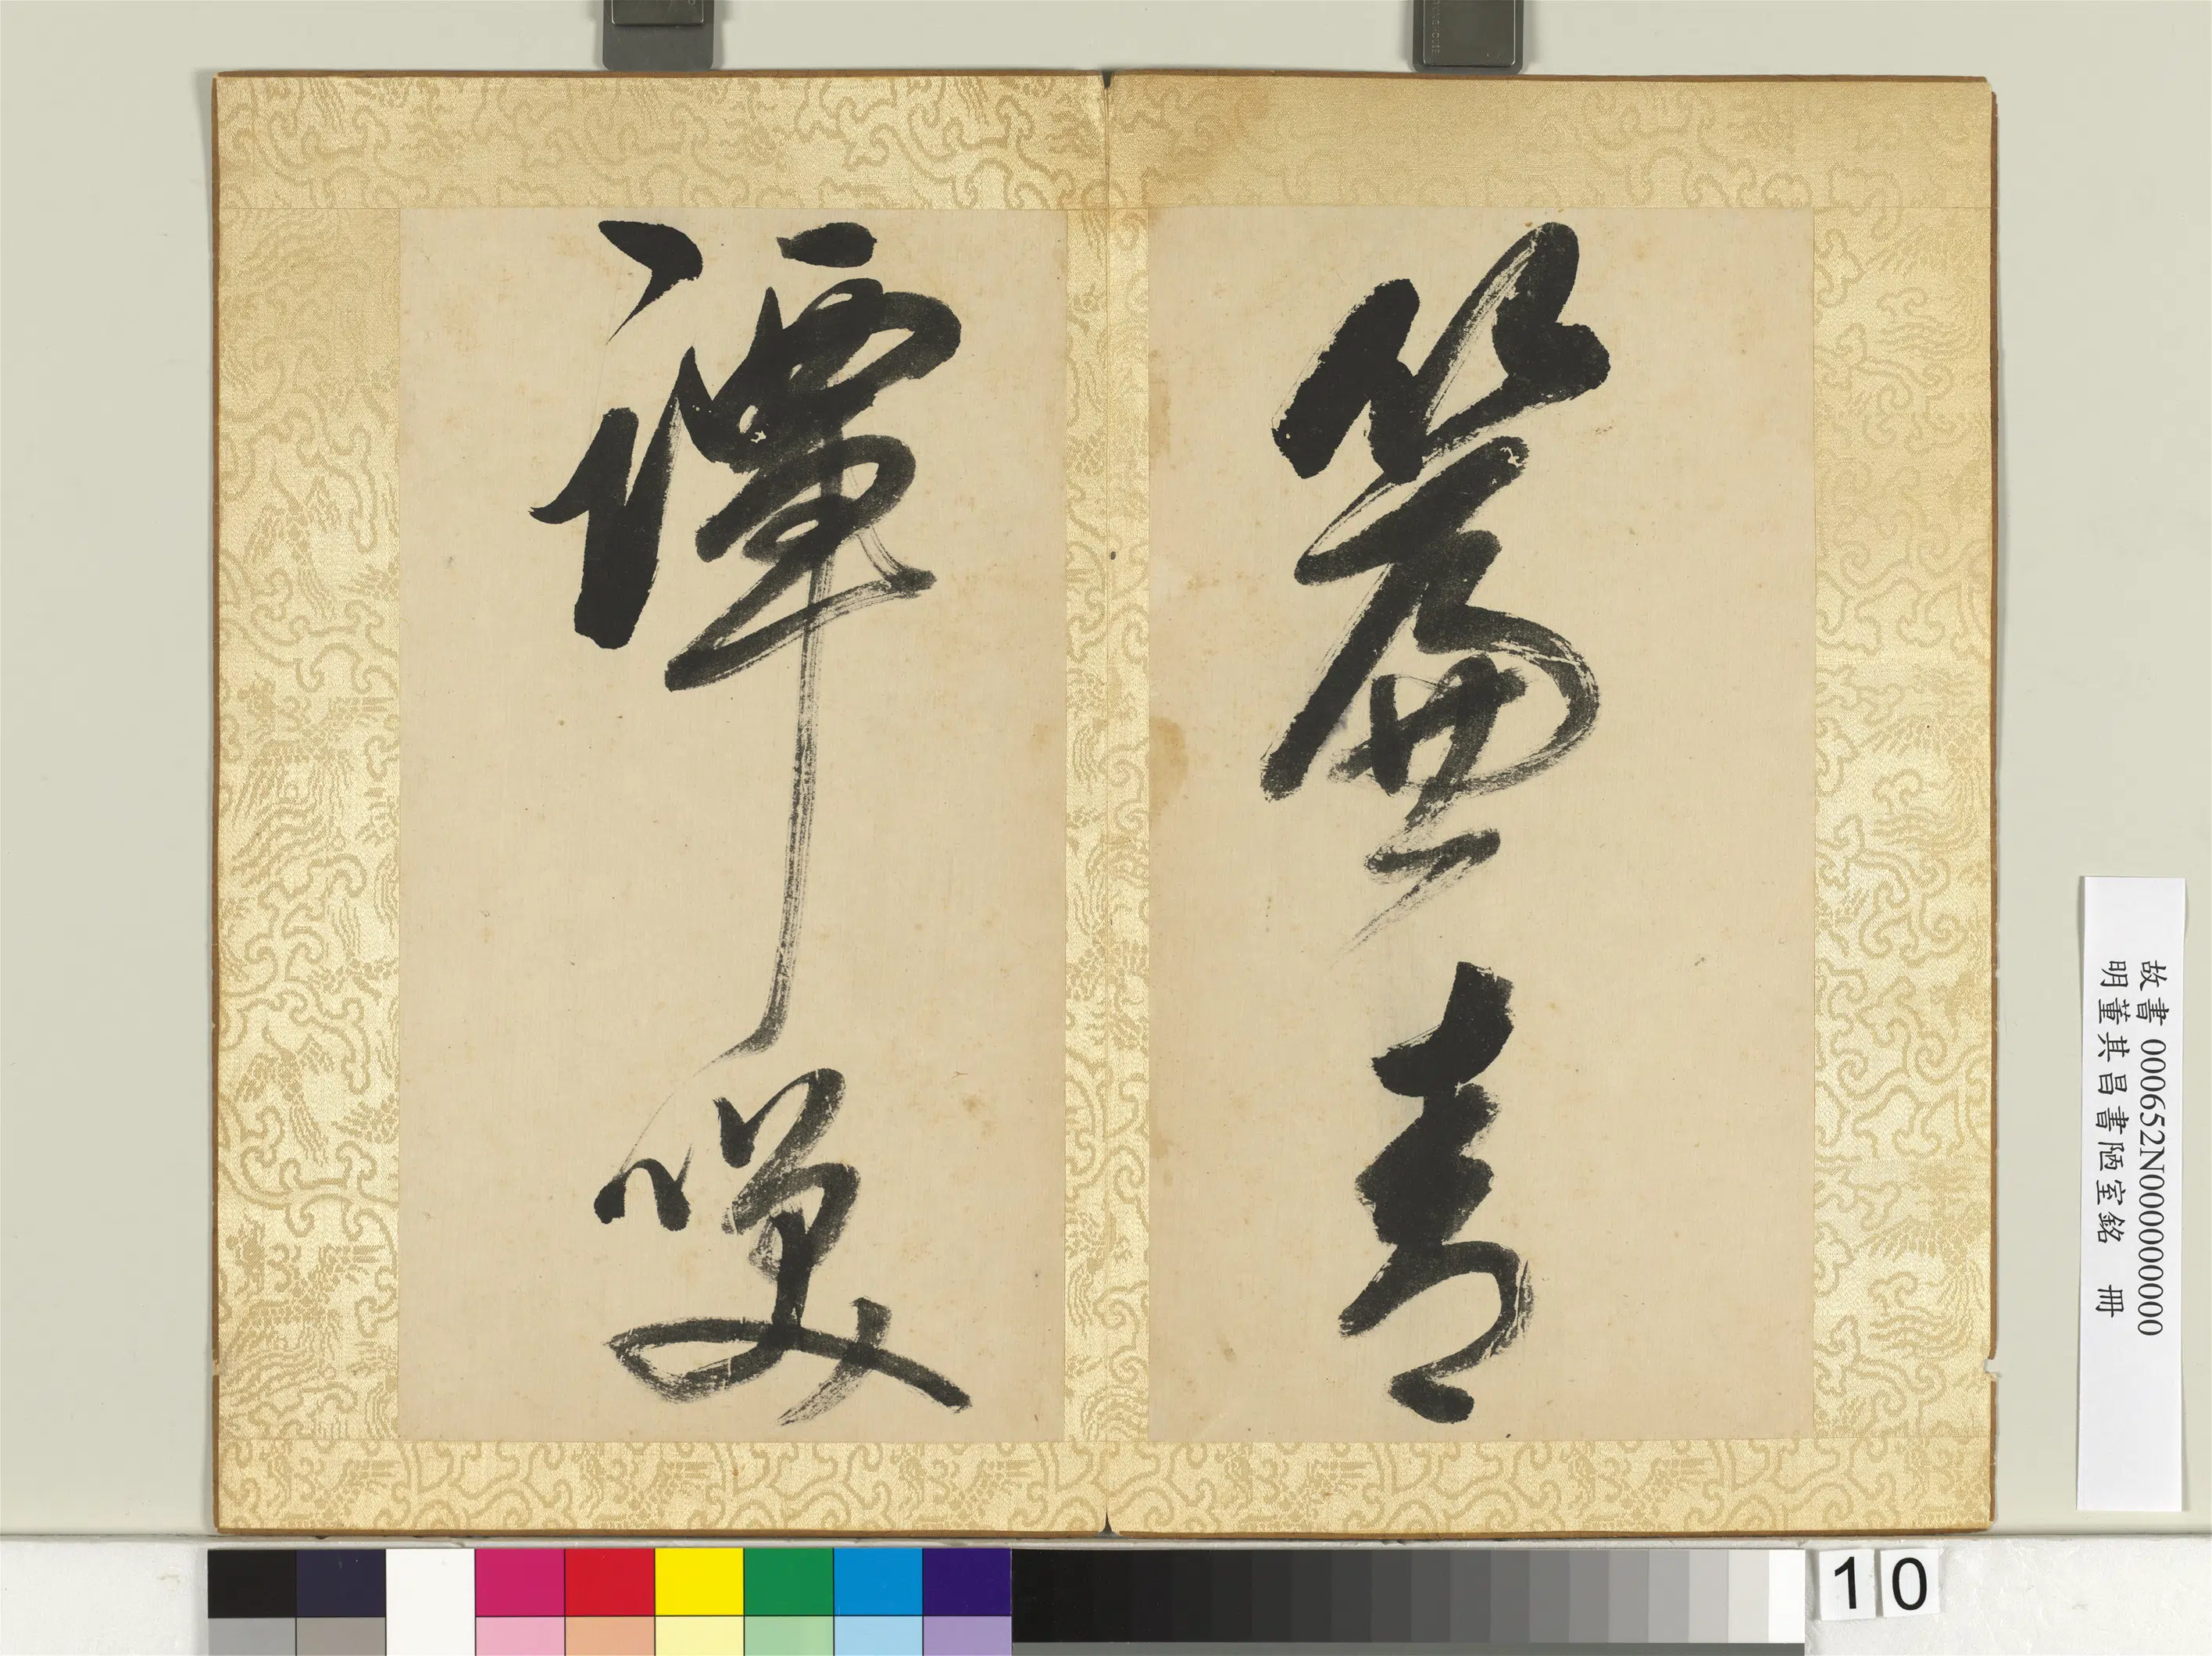 簾青
譚咲
故書 000652N000000000
明董其昌書陋室銘 冊
10